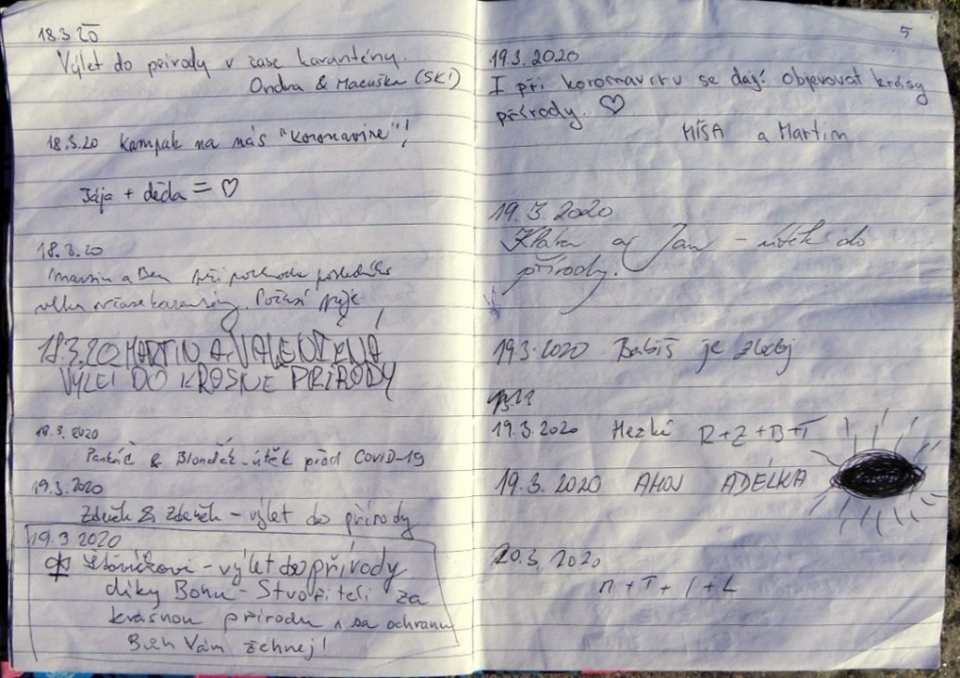 18.3.20
Výlet do přírody v čase karantény.
Ondra & Macuška (SK!)
18.3.20 Kampak na nás "koronavire"!
Jája + děda = ♡
18.3.20
a Ben při pochodu posledního
karantény. Počasí
18.3.20 MARTIN A VALENTÝNA
VÝLET DO KRÁSNÉ PŘÍRODY
18.3.2020
& - útěk před COVID-19
19.3.2020
Zdeněk & Zdeněk - výlet do přírody
19.3 2020
- výlet do přírody
díky Bohu - Stvořiteli za
krásnou přírodu a za ochranu
Bůh Vám žehnej!
5
19.3.2020
I při koronaviru se dají objevovat krásy
přírody. ♡
MÍŠA a Martin
19.3.2020
Klára a Jan - útěk do
přírody.
19.3.2020 Babiš je zloděj
19.3.2020 Hezké R+Z+B+T
19.3.2020 AHOJ ADÉLKA
20.3.2020
M+T+I+L